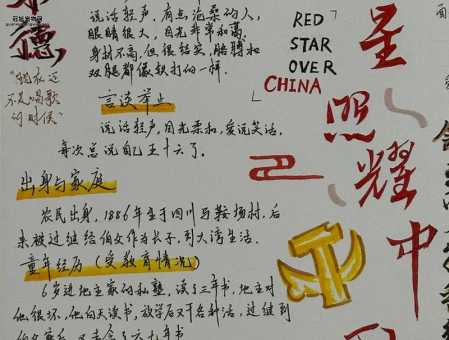 德
"现在还
不是唱歌
的时候"
说话轻声,有点沧桑的人,
眼睛很大,目光非常和蔼。
身材不高,但很结实,胳膊和
双腿都像铁打的一样。
言谈举止
说话轻声,目光柔和,爱说笑话,
每次总说自己五十六了。
出身与家庭
农民出身,1886年生于四川马鞍场村,后
来被过继给伯父作为长子,到大湾生活。
童年经历(受教育情况)
6岁进地主家的私塾,读了三年书,地主对
他很坏,他白天读书,放学后又干各种活,过继到
RED
STAR
OVER
CHINA
星
照
耀
中